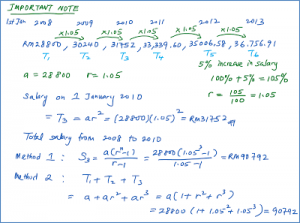 IMPORTANT NOTE
1st Jan 2008 2009 2010 2011 2012 2013
x1.05 x1.05 x1.05 x1.05 x1.05
RM28800, 30240, 31752, 33,339.60, 35006.58, 36.756.91
T1 T2 T3 T4 T5 T6
5% increase in salary
a = 28800 r = 1.05 100% + 5% = 105%
r = 105/100 = 1.05
Salary on 1 January 2010
= T3 = ar² = (28800)(1.05)² = RM31752
Total salary from 2008 to 2010
Method 1 : S3 = a(rⁿ-1)/r-1 = 28800(1.05³-1)/1.05-1 = RM90792
Method 2 : T1 + T2 + T3
= a + ar² + ar³ = a(1+r²+r³)
= 28800 (1+1.05²+1.05³) = 90792